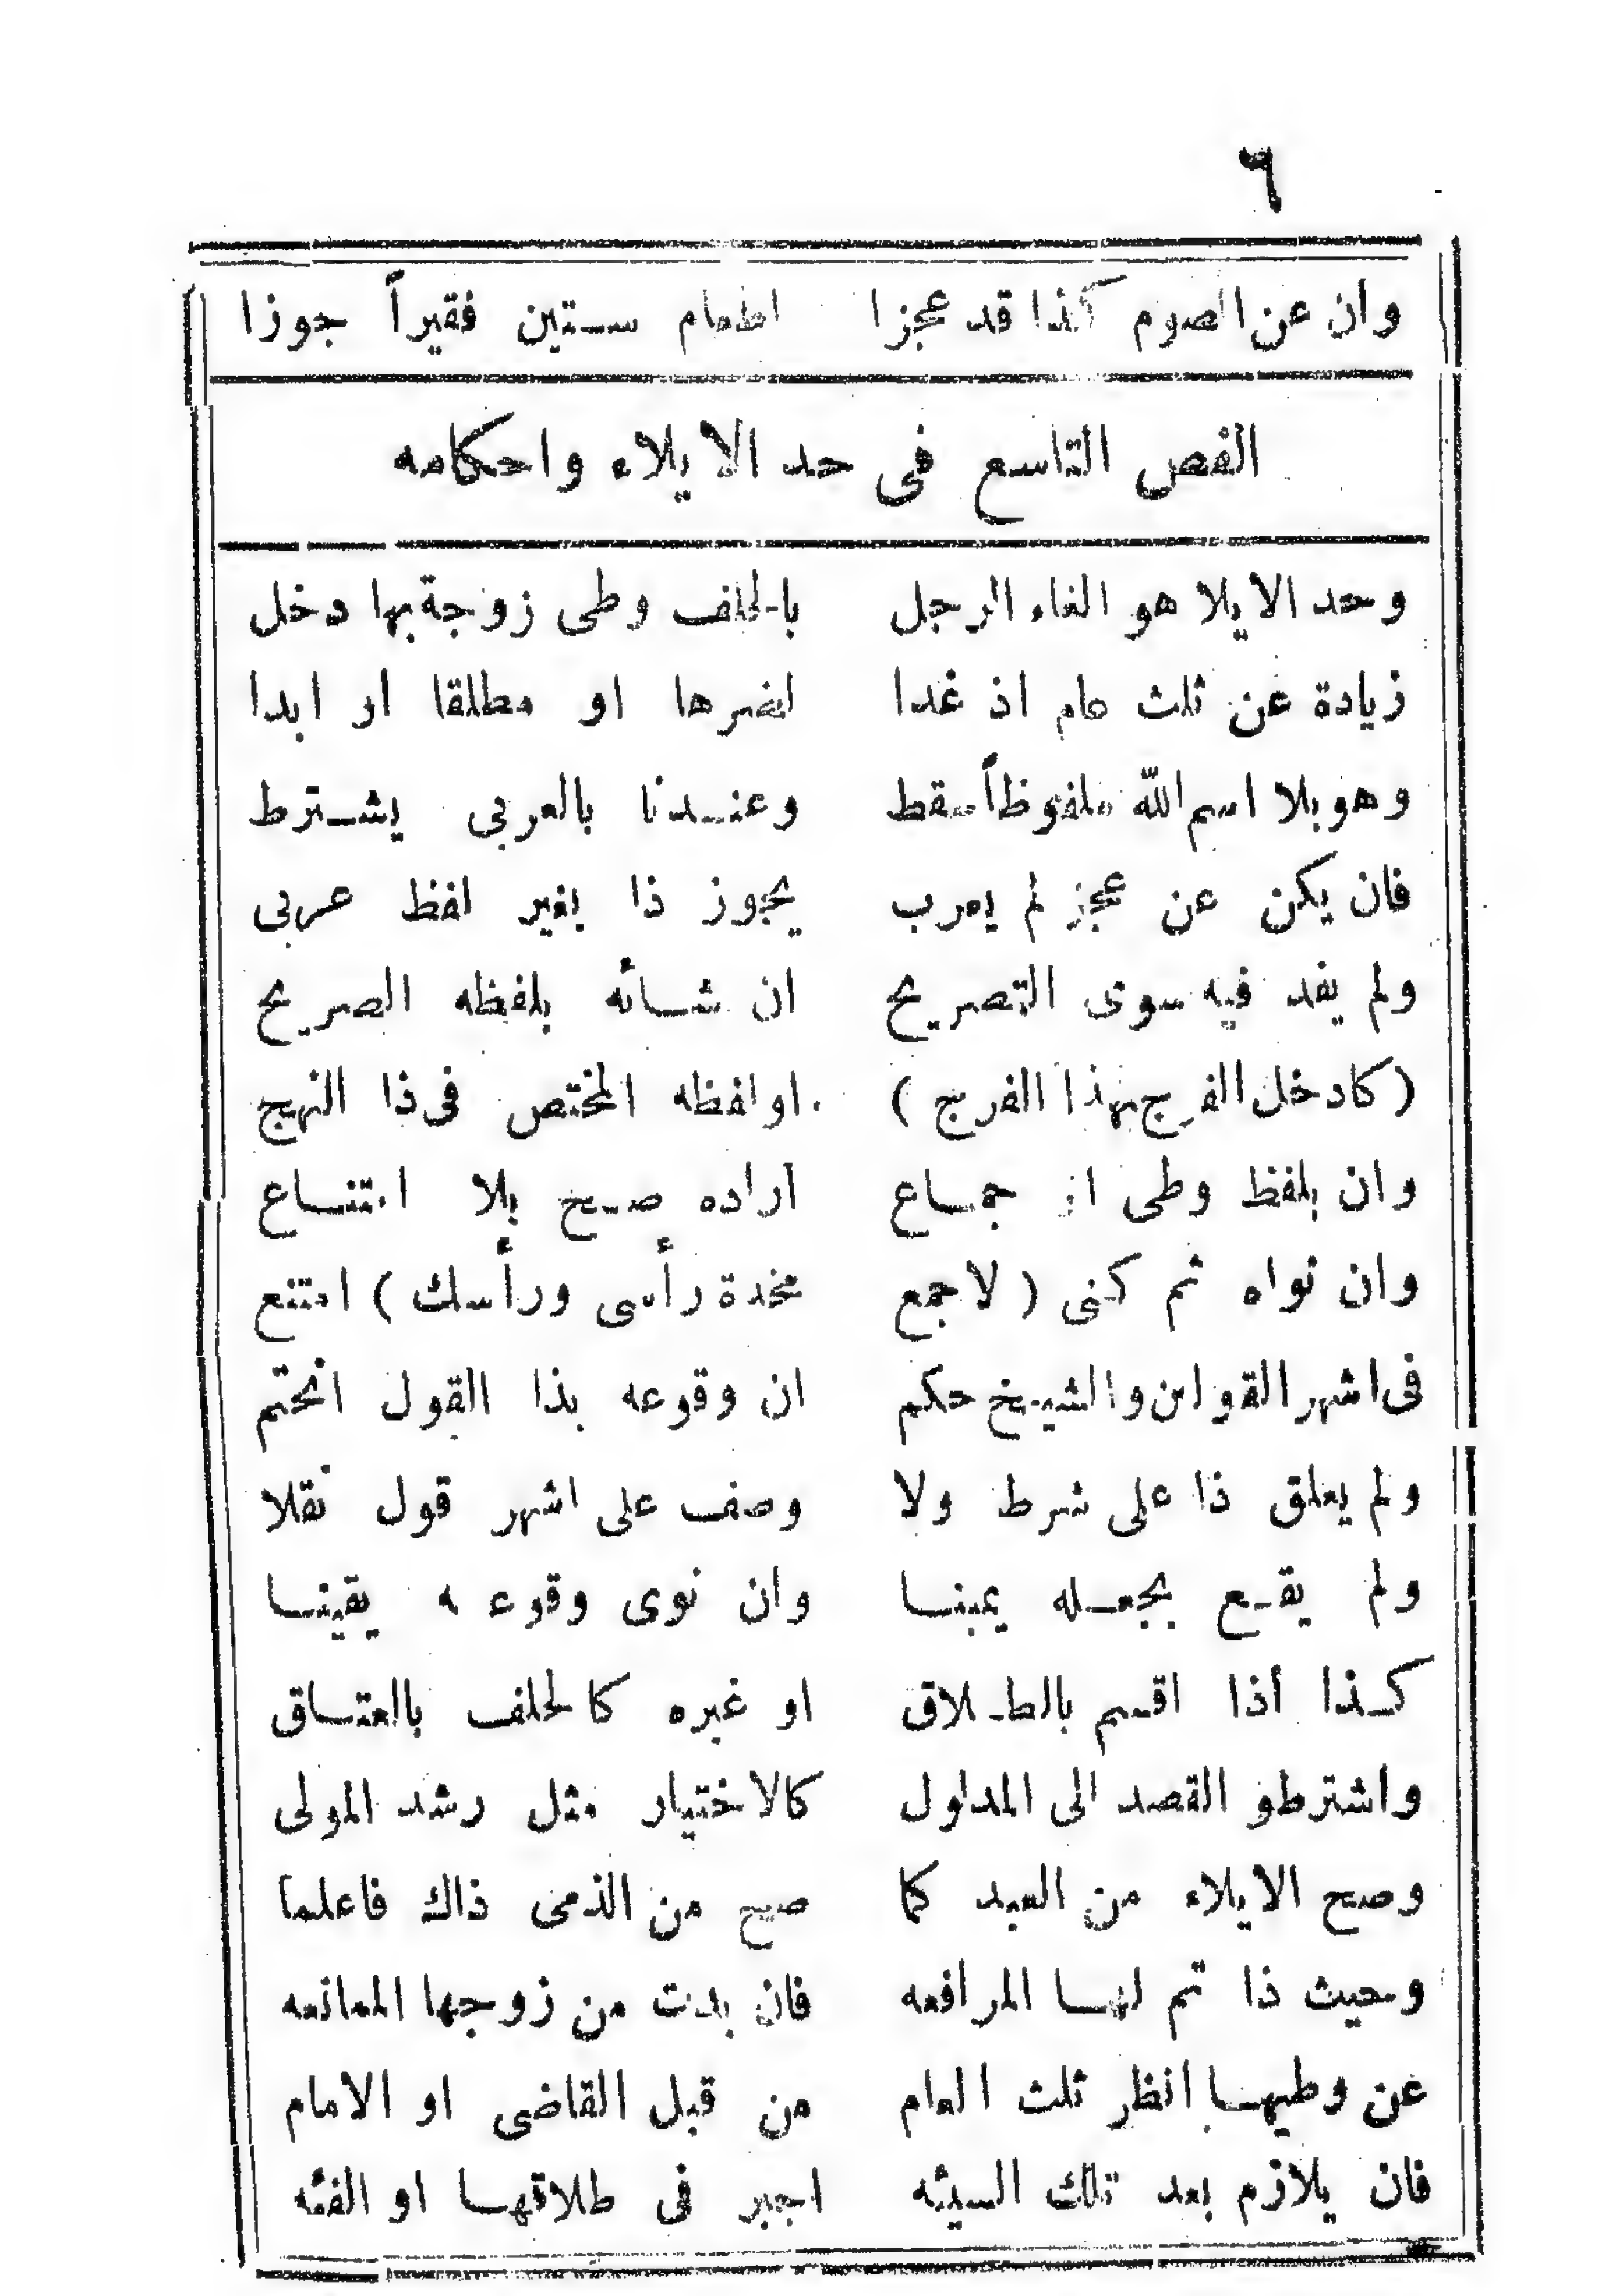 ٦
وان عن الصوم كذا قد عجزا اطعام ستين فقيراً جوزا
الفص التاسع فى حد الايلاء واحكامه
وحد الايلا هو الغاء الرجل بالحلف وطى زوجة بها دخل
زيادة عن ثلث عام اذ غدا لضرها او مطلقا او ابدا
وهو بلا اسم الله ملفوظاً سقط وعندنا بالعربى يشترط
فان يكن عن عجز لم يعرب يجوز ذا بغير لفظ عربى
ولم يفد فيه سوى التصريح ان شأنه بلفظه الصريح
(كادخل الفرج بهذا الفرج) او لفظه المختص فى ذا النهج
وان بلفظ وطى او جماع اراده صح بلا امتناع
وان نواه ثم كنى (لا جمع مخدة رأسى ورأسك) امتنع
فى اشهر القولين والشيخ حكم ان وقوعه بذا القول انحتم
ولم يعلق ذا على شرط ولا وصف على اشهر قول نقلا
ولم يقع بجعله يمينا وان نوى وقوعه يقينا
كذا اذا اقسم بالطلاق او غيره كالحلف بالعتاق
واشترطو القصد الى المدلول كالاختيار مثل رشد المولى
وصح الايلاء من العبد كما صح من الذمى ذاك فاعلما
وحيث ذا تم لها المرافعه فان بدت من زوجها الممانعه
عن وطيها انظر ثلث العام من قبل القاضى او الامام
فان يلازم بعد تلك السيئه اجبر فى طلاقها او الفئه